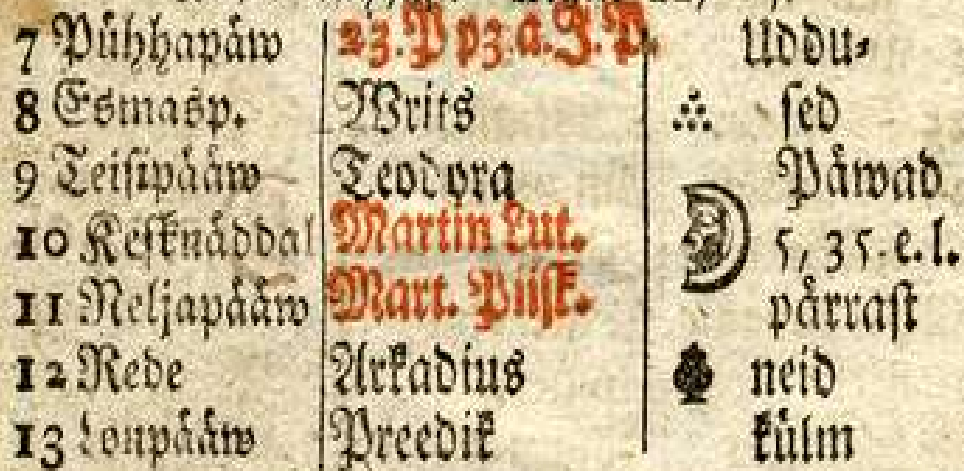 7 Pühhapäw 23. P pz. a. J. P. Uddu-
8 Esmasp. Writs sed
9 Teisipääw Teodora Päwad
10 Kesknäddal Martin Lut. 5, 35. e. l.
11 Neljapääw Mart. Piisk. pärrast
12 Rede Arkadius neid
13 Loupääw Preedik külm